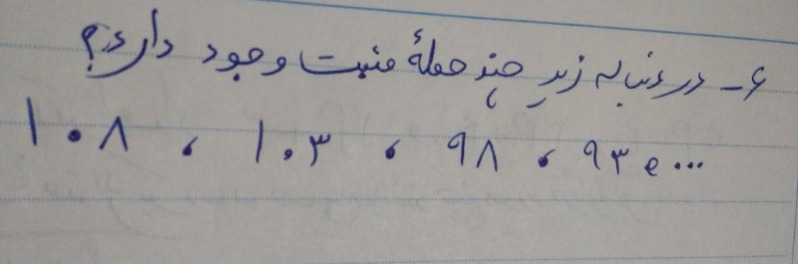 ۶- در دنباله زیر چند جملهٔ مثبت وجود دارد؟
۱۰۸ ، ۱۰۳ ، ۹۸ ، ۹۳ و ...